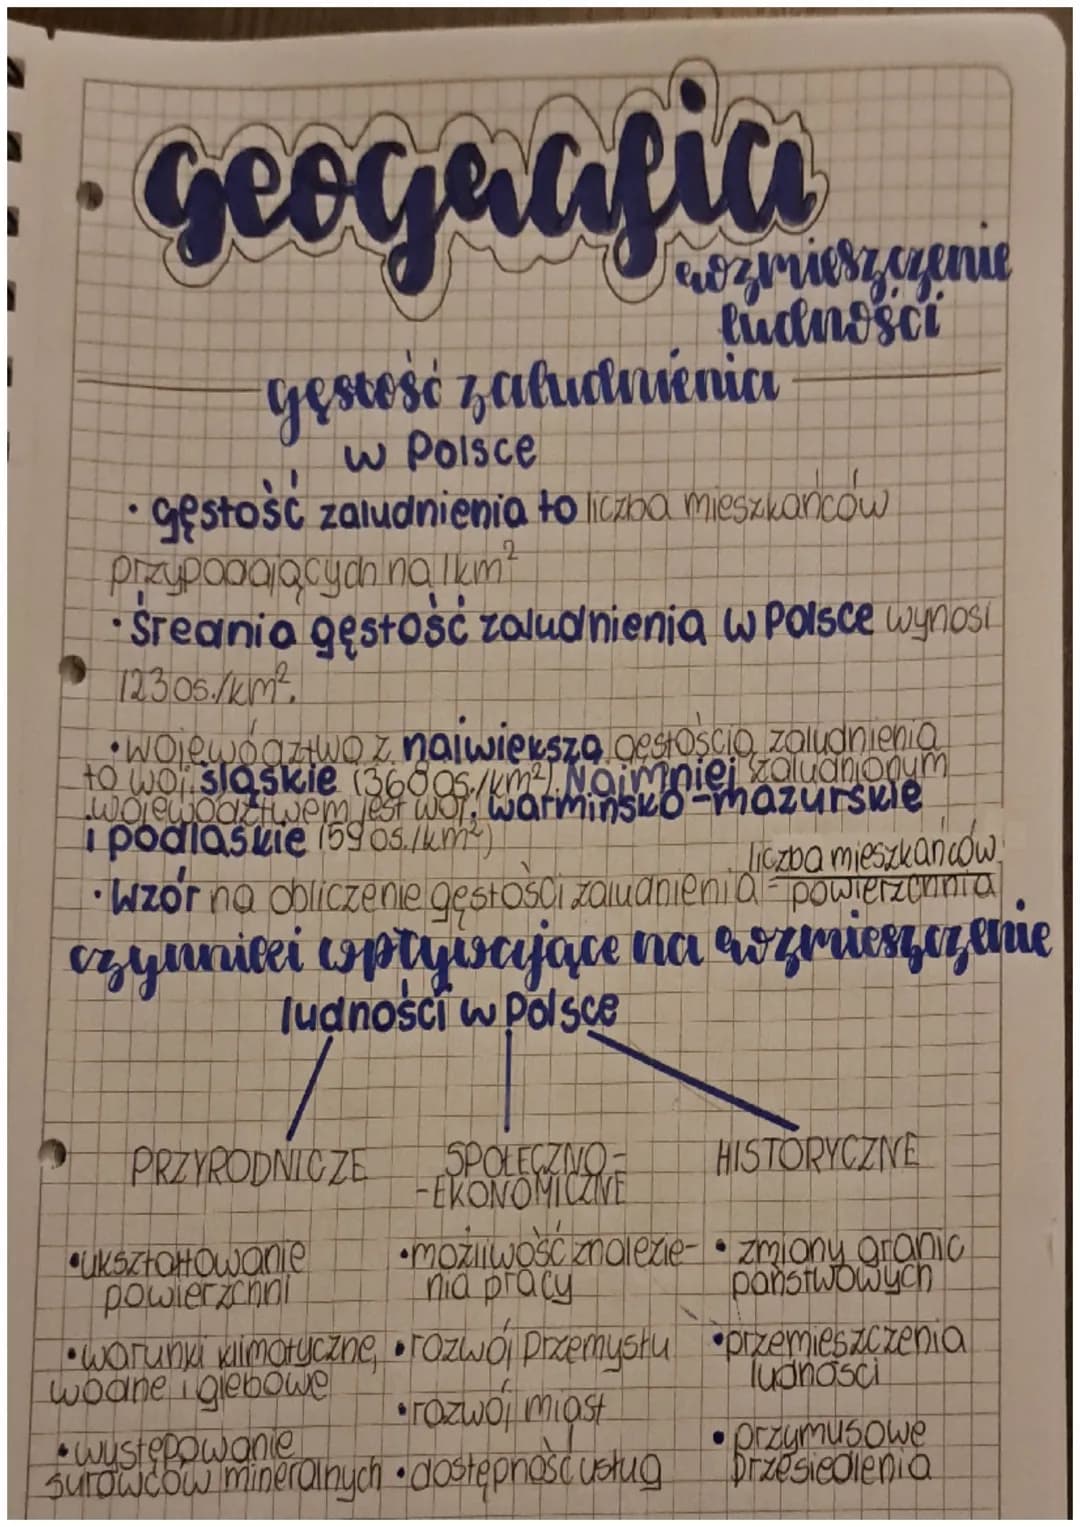 geografia
rozmieszczenie
ludności
gęstość zaludnienia
w Polsce
· gęstość zaludnienia to liczba mieszkańców
przypadających na 1km²
· Średnia gęstość zaludnienia w Polsce wynosi
123 os./km².
· województwo z największą gęstością zaludnienia
to woj. śląskie (368 os./km²). Najmniej zaludnionym
województwem jest woj. warmińsko-mazurskie
i podlaskie (59 os./km²)
liczba mieszkańców
· Wzór na obliczenie gęstości zaludnienia = powierzchnia
czynniki wpływające na rozmieszczenie
ludności w Polsce
PRZYRODNICZE SPOŁECZNO- HISTORYCZNE
-EKONOMICZNE
•ukształtowanie •możliwość znalezie- • zmiany granic
powierzchni nia pracy państwowych
•warunki klimatyczne, •rozwój przemysłu •przemieszczenia
wodne i glebowe ludności
•rozwój miast
•występowanie • przymusowe
surowców mineralnych •dostępność usług przesiedlenia